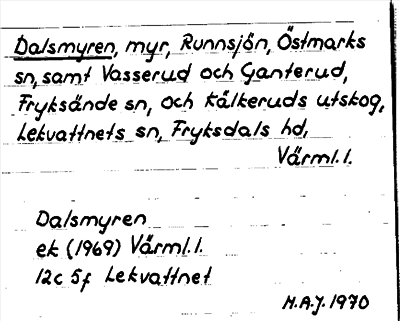 Dalsmyren, myr, Runnsjön, Östmarks
sn, samt Vasserud och Ganterud,
Fryksände sn, och Kälkeruds utskog,
Lekvattnets sn, Fryksdals hd,
Värml. l.
Dalsmyren
ek (1969) Värml. l.
12c 5f Lekvattnet
M.A.J. 1970